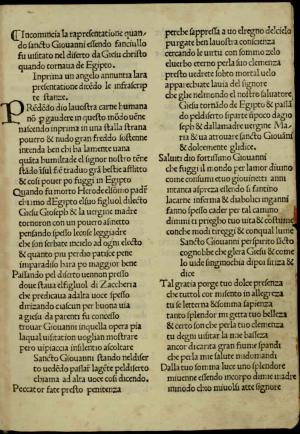 Incomincia la rapresentatione quan
do sancto Giouanni essendo fanciullo
fu uisitato nel diserto da Giesu christo
quando tornaua de Egipto.
Inprima un angelo annuntia lara
presentatione dicēdo le infrascrip
te stanze.
Prēdēdo dio la uostra carne humana
nō p gaudere in questo mōdo uēne
nascendo inprima in una stalla strana
pouero & nudo gran freddo sostenne
intenda ben chi ha la mente uana
quāta humiltade el signor nostro tēne
stādo īsul fiē tradito grā bestie afflicto
& cosi pouer po fuggi in Egipto
Quando fu morto Herode elsomo padrē
chiamo dEgipto elsuo figluol dilecto
Giesu Gioseph & la uergine madre
tornoron con un pouero asinetto
pensando spesso le cose leggiadre
che son serbate in cielo ad ogni electo
& quanto piu perdno patisce pene
inparadiso hara po maggior bene
Passando pel diserto uennon presso
doue staua elfigluol di Zaccheria
che predicaua adalta uoce spesso
dirizando ciascun per buona uia
a giesu da parenti fu concesso
trouar Giouanni inquella opera pia
laqual uisitation uoglian mostrare
pero uipiaccia insilentio ascoltare
Sancto Giouanni stando neldiser
to uededo passar lagēte peldiserto
chiama ad alta uoce cosi dicendo.
Peccator fate presto penitenza
perche sappressa a uo elregno del cielo
purgate ben la uostra coscienza
cercando le uirtu con sommo zelo
eluerbo eterno per la sua clemenza
presto uedrete sobto mortal uelo
apparechiate la uia del signore
che gli e nelmondo el nostro saluatore.
Giesu tornādo de Egipto & passā
do peldiserto si parte ípoco dagio
seph & dallamadre uergine Ma
ria & ua a trouare sancto Giouāni
& dolcemente glidice.
Saluiti dio fortissimo Giouanni
che fuggi il mondo per lamor diuino
come consumi eltuo giouinetti anni
in tanta aspreza essendo si fantino
lacarne inferma & diabolici inganni
fanno spesso cader per tal camino
dimmi ti priegho tuo uita & costume
con che modi ti reggi & con qual lume
Sancto Giouanni perspirito sācto
cognobbe che glera Giesu & come
lo uide singinochia dipoi siriza &
dice
Tal gratia porge tuo dolce presenza
che tuttol cor misento in allegreza
tu se letterna & somma sapienza
tanto splendor mi getta tuo belleza
& certo son che per la tuo clemenza
tu degni uisitar la mie basseza
ancor di carita gran fiume spandi
che per la mie salute madomandi
Dalla tuo somma luce uno splendore
miuenne essendo incorpo di mie madre
in modo chio miuolsi atte signore